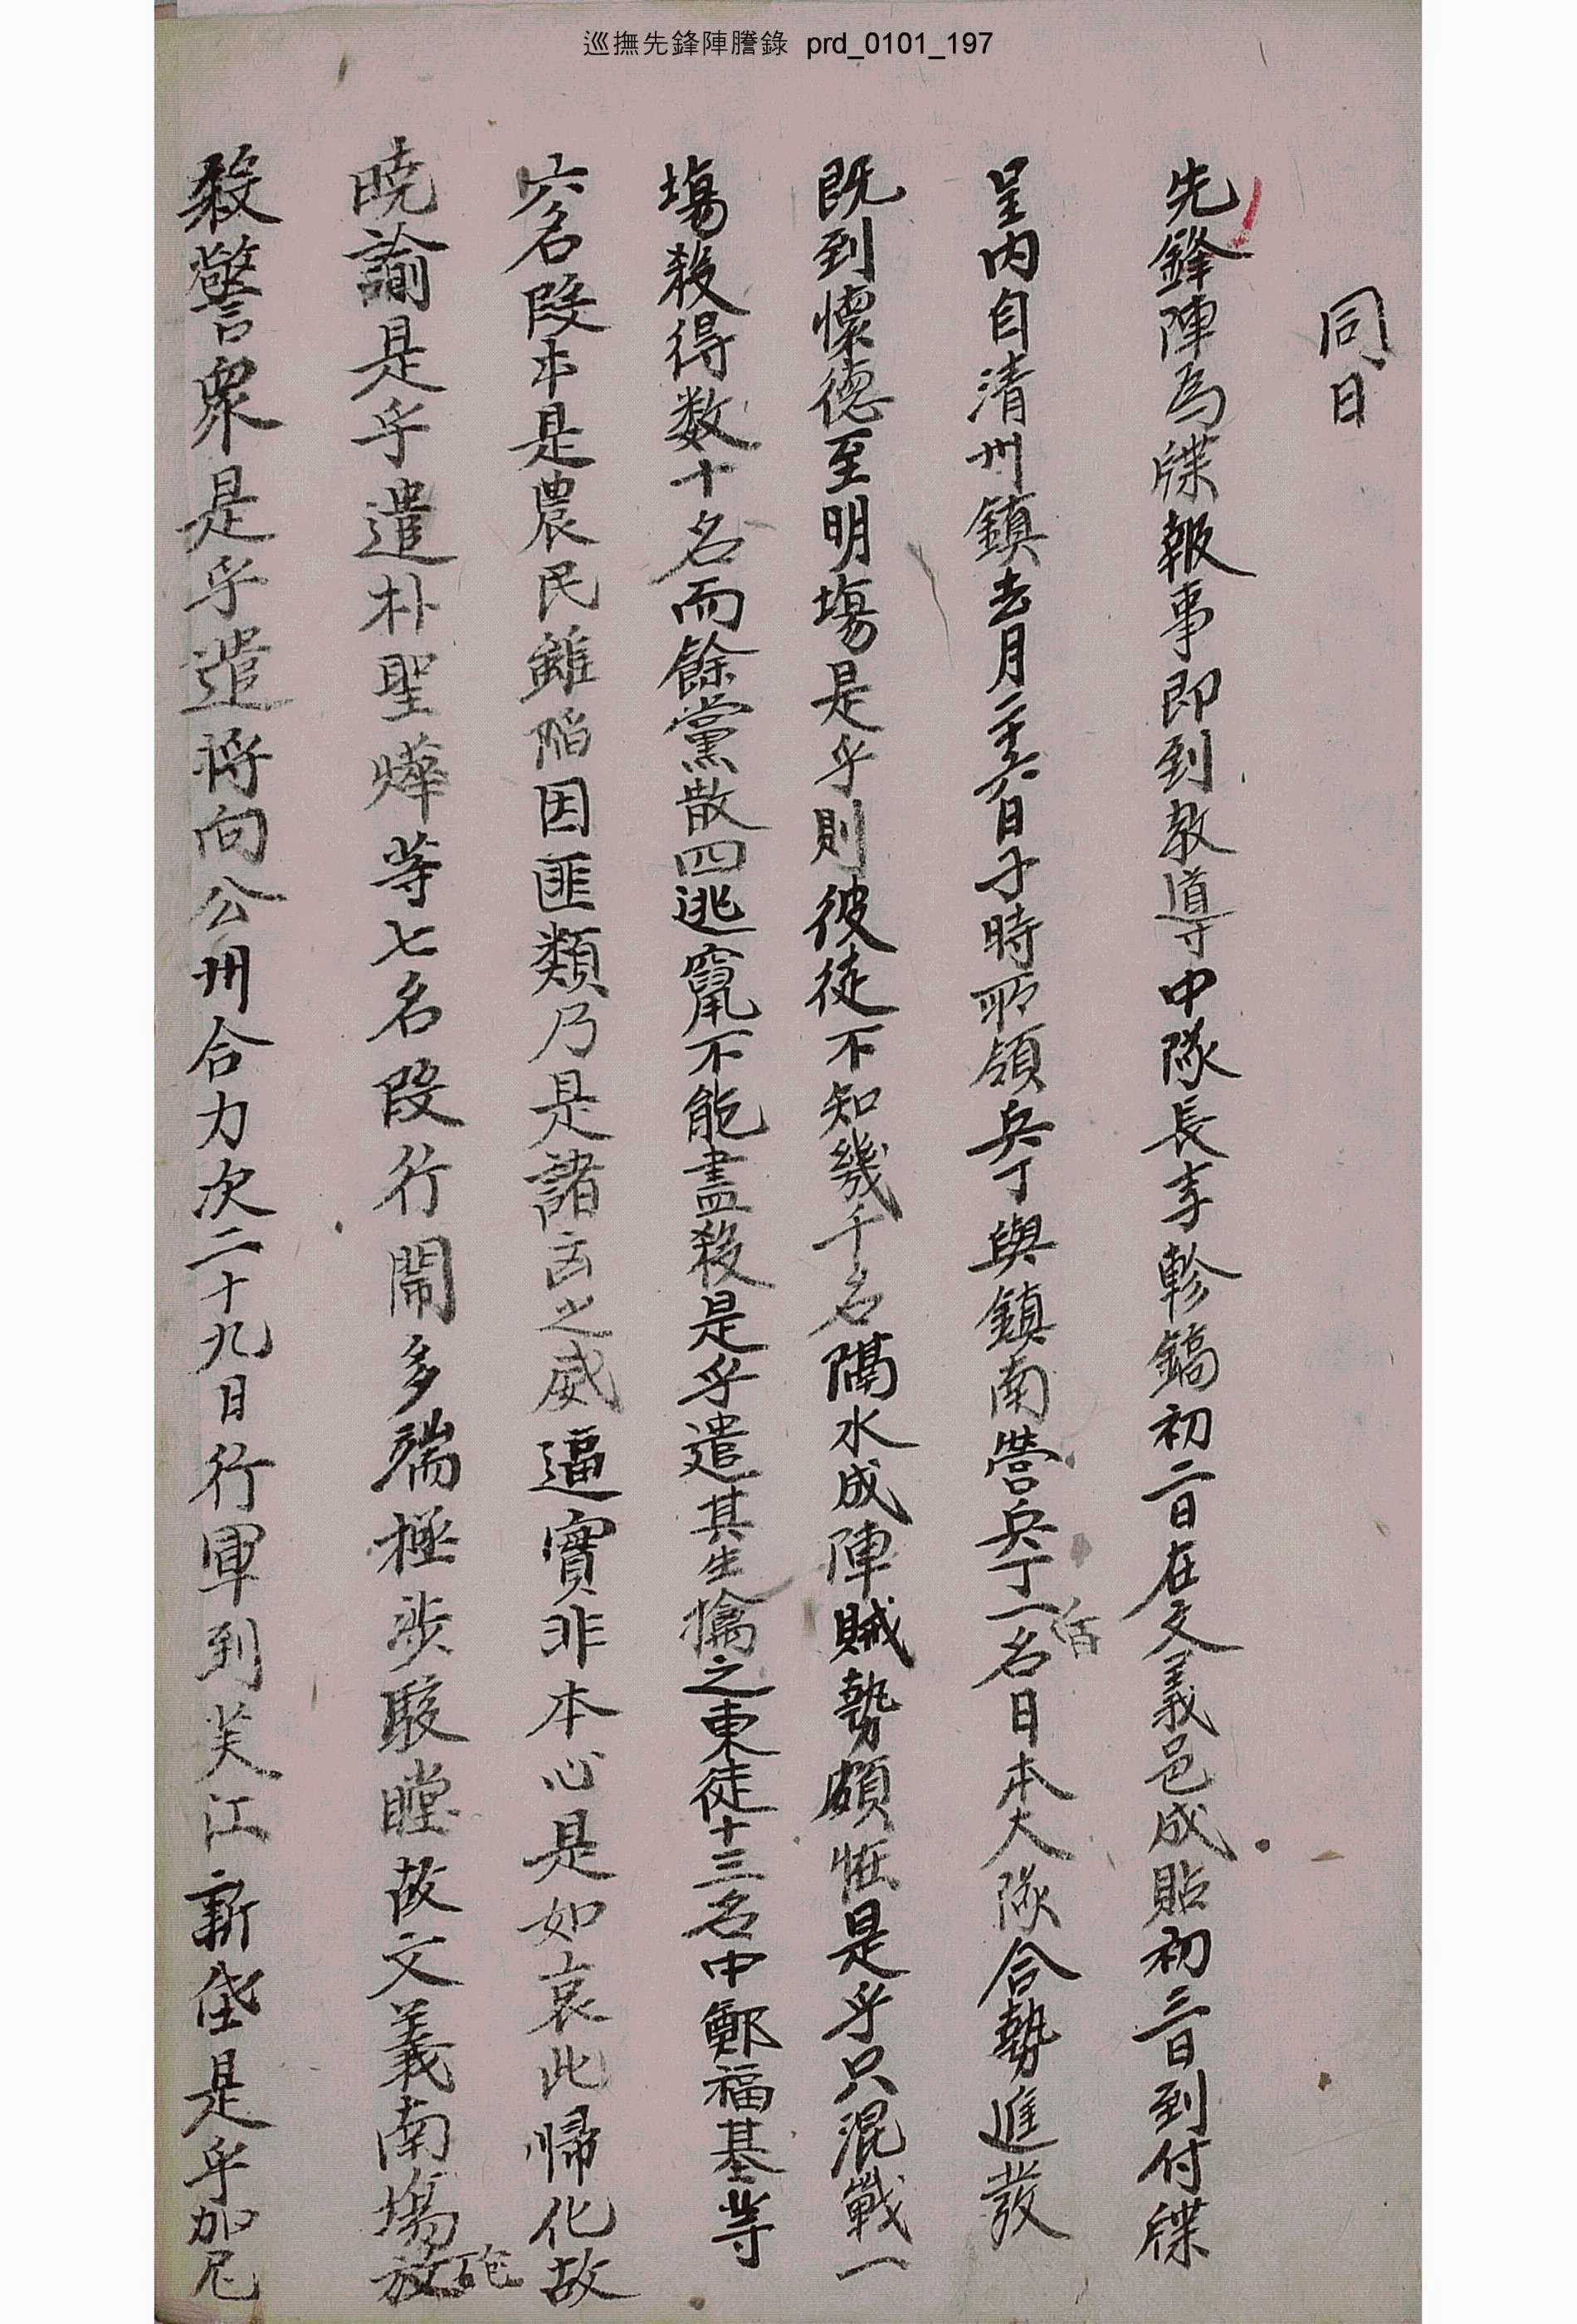 巡撫先鋒陣謄錄 prd_0101_197
同日
先鋒陣爲牒報事即到教導中隊長李軫鎬初二日在文義邑成貼初三日到付牒
呈內自淸州鎭去月二十六日子時所領兵丁與鎭南營兵丁一百名日本大隊合勢進發
旣到懷德至明場是乎則彼徒不知幾千名隔水成陣賊勢頗恠是乎只混戰一
塲殺得数十名而餘黨散四逃竄不能盡殺是乎遣其生擒之東徒十三名中鄭福基等
六名段本是農民雖陷因匪類乃是諸之威逼實非本心是如哀此歸化故
曉諭是乎遣朴聖燁等七名段行鬧多端極涉駭瞠故文義南塲放砲
殺警衆是乎遣將向公州合力次二十九日行軍到芙江新垈是乎加尼